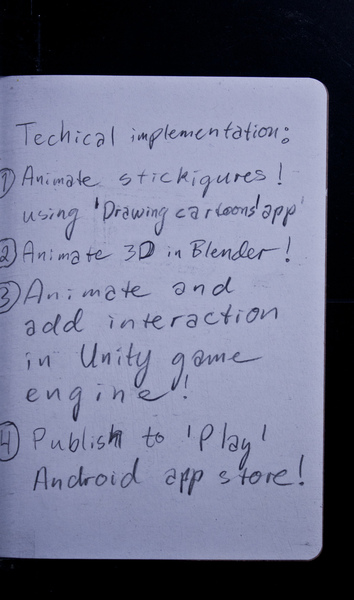 Techical implementation:
1 Animate stickigures!
using 'Drawing cartoons' app'
2 Animate 3D in Blender!
3 Animate and
add interaction
in Unity game
engine!
4 Publish to 'Play'
Android app store!